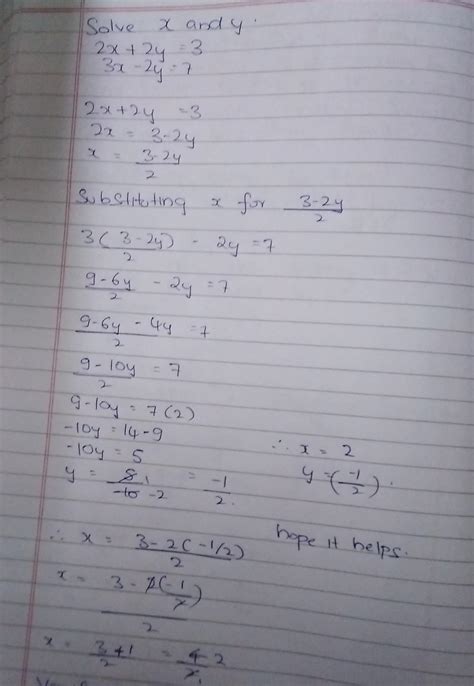 Solve x and y.
2x + 2y = 3
3x - 2y = 7
2x + 2y = 3
2x = 3-2y
x = 3-2y / 2
Substituting x for 3-2y / 2
3(3-2y) / 2 - 2y = 7
9-6y / 2 - 2y = 7
9-6y - 4y / 2 = 7
9-10y / 2 = 7
9-10y = 7(2)
-10y = 14-9
-10y = 5
y = 5 1 / -10 -2 = -1 / 2
∴ x = 2
y = (-1 / 2).
∴ x = 3-2(-1/2) / 2
hope it helps.
x = 3 - 2(-1 / 2) / 2
x = 3+1 / 2 = 4 2 / 2